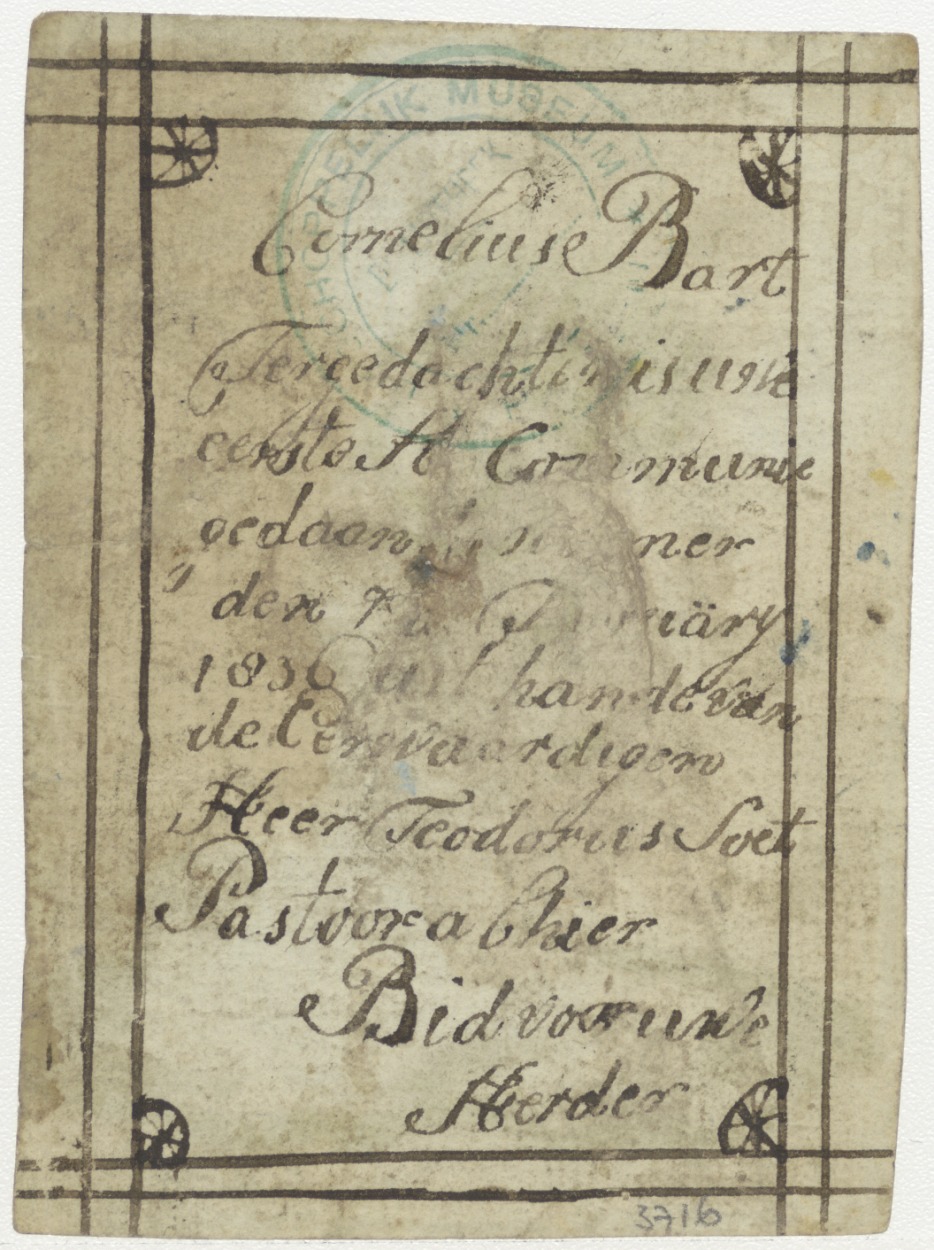 Corneliuse Bart
Tergedachtenis uwe
eerste H Communie
gedaan
den 7
1836 uit hande van
de Eerwaardigen
Heer Teodorus Soet
Pastoor alhier
Bid voor uwe
Herder
MUSEUM
3716